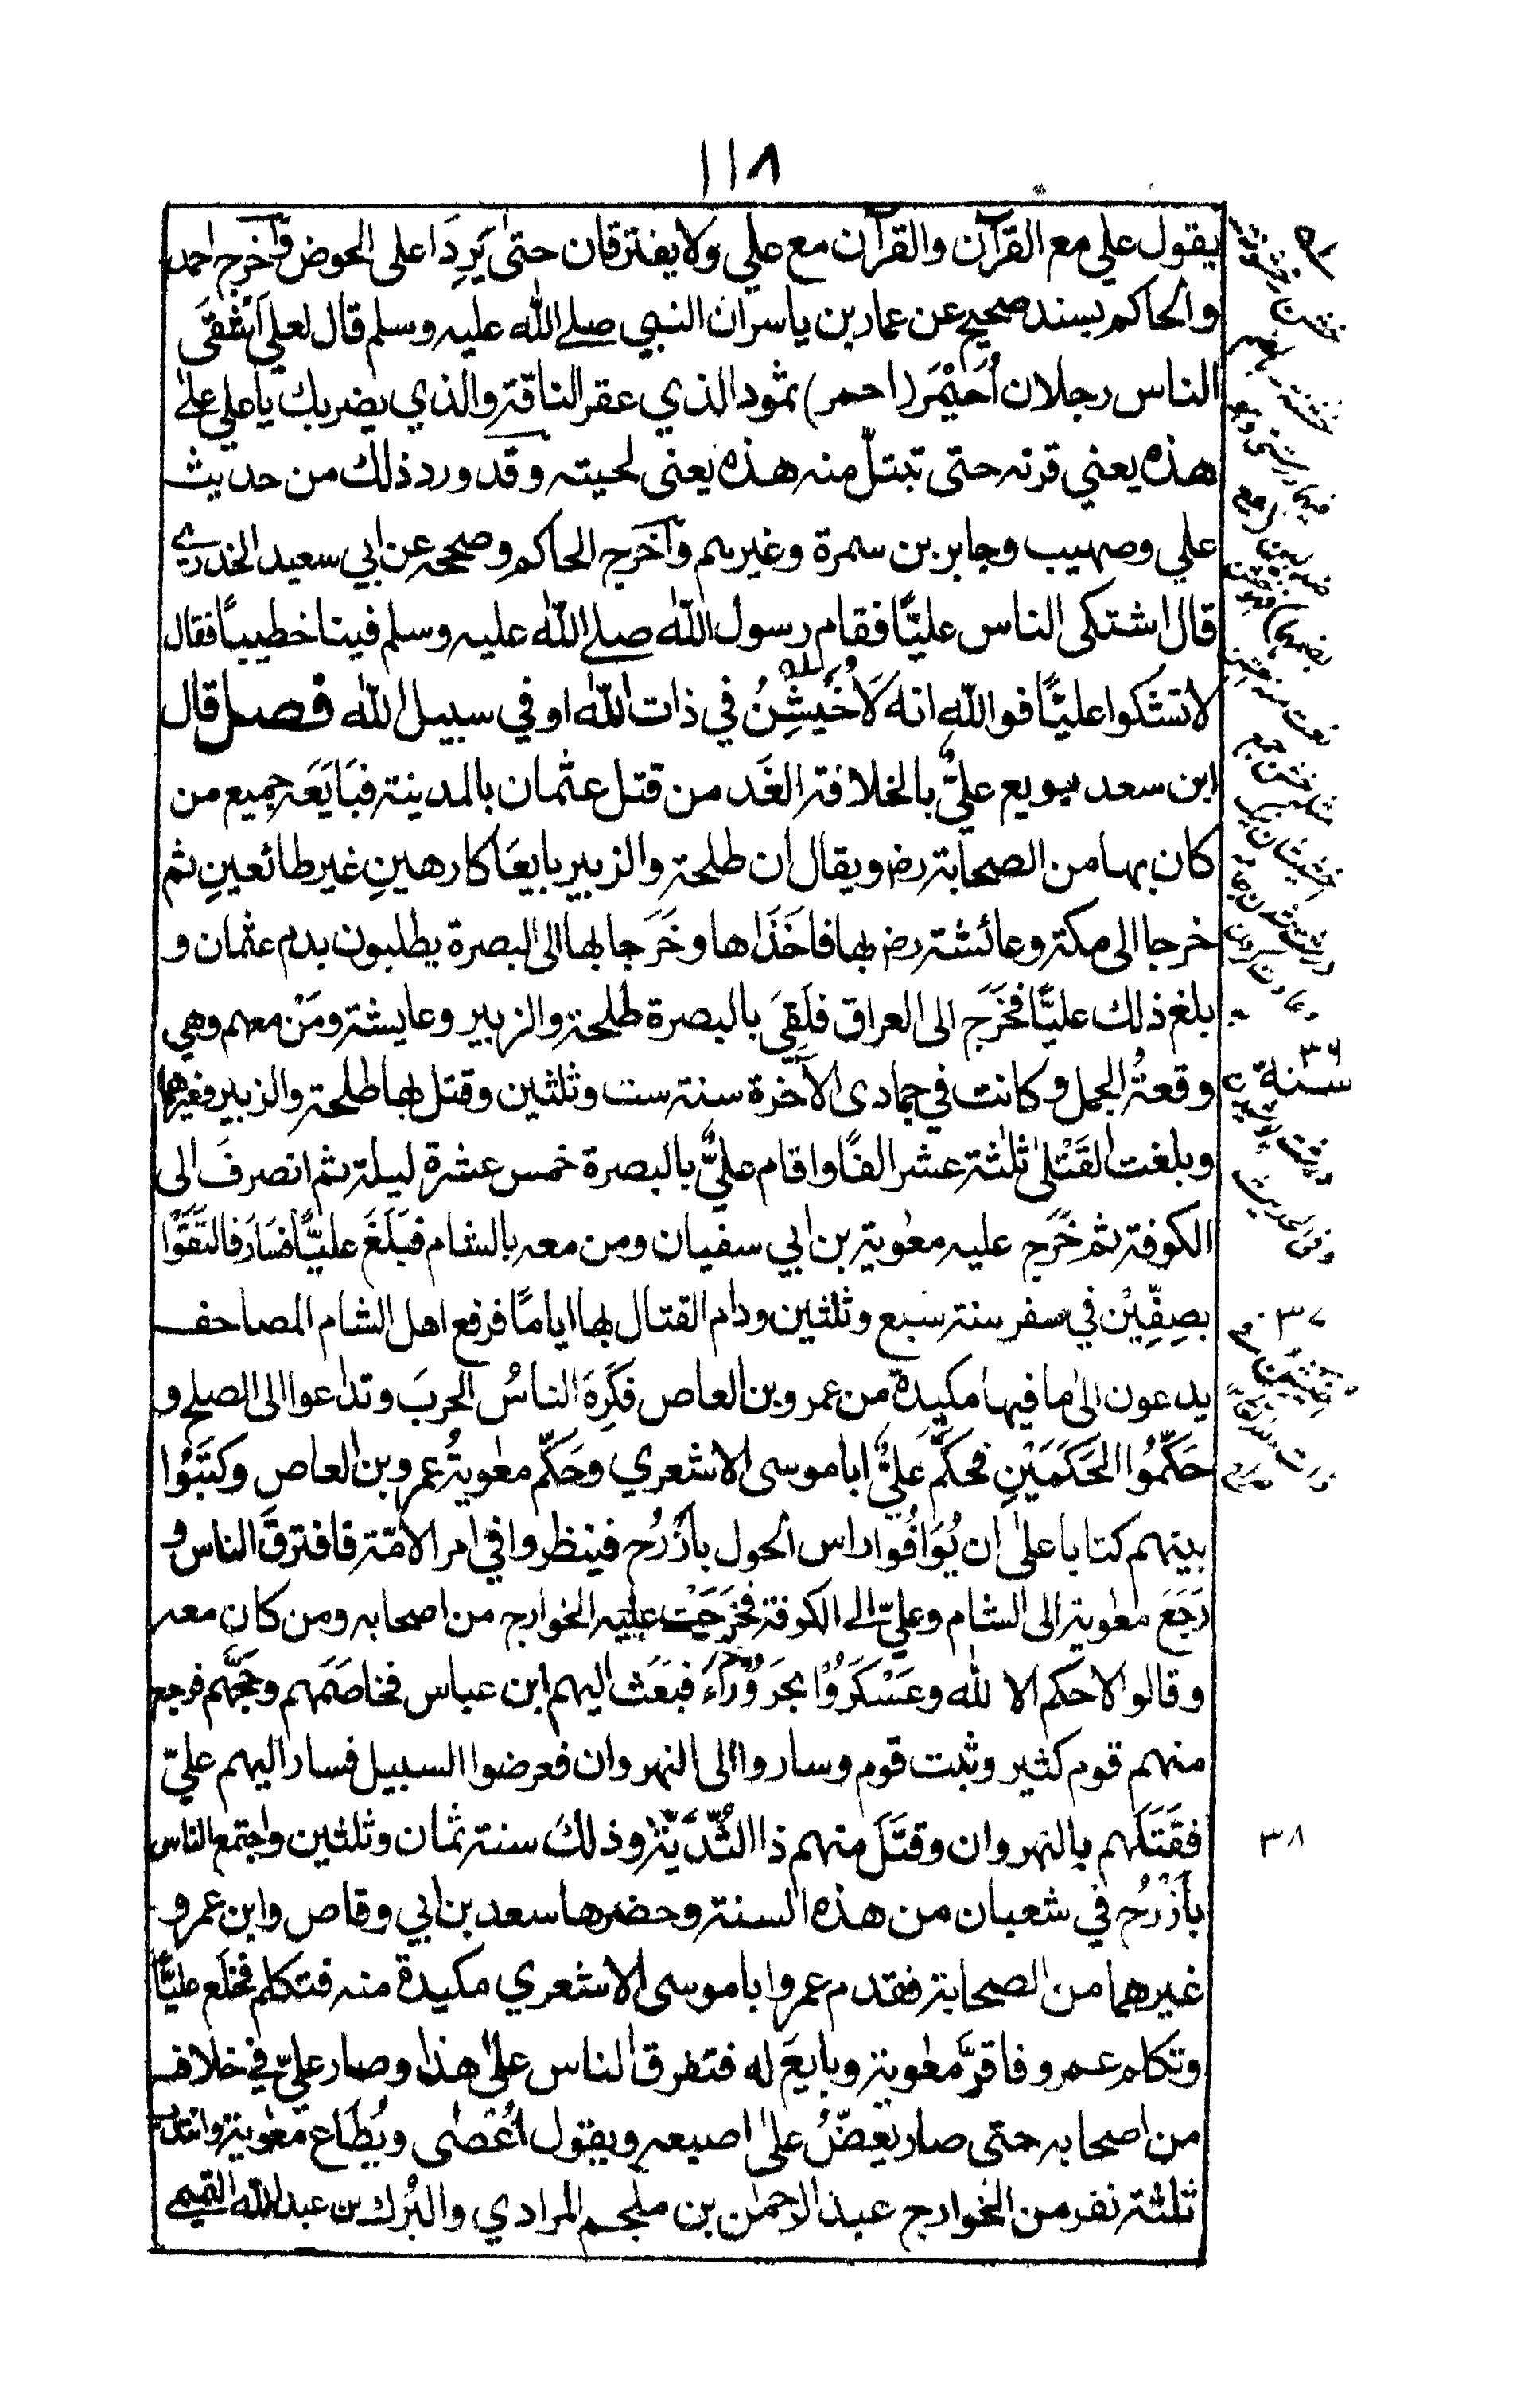 ١١٨
يقول علي مع القرآن والقرآن مع علي ولا يفترقان حتىٰ يَرِدَا على الحوض وآخرج احمد
والحاكم بسند صحيح عن عمار بن ياسر ان النبي صلے الله عليه وسلم قال لعلي اَشْقَى
الناس رجلان اُحَيْمَر (احمر) ثمود الذي عقر الناقة والذي يضربك يا علي علےٰ
هذه يعني قرنه حتى تبتلّ منه هذه يعنى لحيته وقد ورد ذلك من حديث
علي وصهيب وجابر بن سمرة وغيرهم وآخرج الحاكم وصححه عن ابي سعيد الخدري
قال اشتكى الناس عليًّا فقام رسول اللّٰه صلے اللّٰه عليه وسلم فينا خطيبًا فقال
لا تشكوا عليًّا فوالله انه لَاُخَيْشِنُ في ذات اللّٰه او في سبيل اللّٰه فصل قال
ابن سعد بويع عليٌّ بالخلافة الغَد من قتل عثمان بالمدينة فبَايَعَه جميع من
كان بها من الصحابة رض ويقال ان طلحة والزبير بايعَا كارهينِ غير طائعينِ ثم
خرجا الى مكة وعائشة رض بها فاَخَذَاها وخَرَجا بها الى البصرة يطلبون بدم عثمان و
بلغ ذلك عليًّا فخَرَج الى العراق فلَقِىَ بالبصرة طلحة والزبير وعايشة ومَنْ معهم وهي
وقعةُ الجمل وكانت في جمادى الآخرة سنة ست وثلثين وقتل بها طلحة والزبير وغيرهما
وبلغت القَتْلىٰ ثلثة عشر الفًا واقام عليٌّ بالبصرة خمس عشرة ليلة ثم انصرفَ الى
الكوفة ثم خَرَج عليه معٰوية بن ابي سفيان ومن معه بالشام فبَلَغَ عليًّا فسَارَ فالتَقَوْا
بصِفِّيْن في سفر سنة سَبع وثلثين ودام القتال بها اياما فرفع اهل الشام المصاحف
يدعون الىٰ ما فيها مكيدة من عمرو بن العاص فكَرِهَ الناسُ الحربَ وتداعوا الى الصلح و
حَكَّمُوا الحَكَمَيْنِ فحكَّم عليٌّ ابا موسى الاشعري وحَكَّم معٰويةُ عمرو بن العاص وكتَبُوا
بينهم كتابا علىٰ ان يُوَافُوا راس الحول بأذْرُح فينظروا في امر الاُمّة فافترقَ الناس و
رَجَعَ معٰوية الى الشام وعليّ الے الكوفة فخَرَجَتْ عليه الخوارج من اصحابه ومن كان معه
وقالوا لا حكم الا للّٰه وعَسْكَرُوْا بحَرُوْرَاءَ فبَعَث اليهم ابن عباس فخاصَمَهم وحَجَّهم فرجع
منهم قوم كثير وثبت قوم وساروا الى النهروان فعرضوا السبيل فسار اليهم عليّ
فقَتَلَهم بالنهروان وقتَلَ منهم ذا الثُّدَيَّة وذلك سنة ثمان وثلثين واجتمع الناس
بأذْرُح في شعبان من هذه السنة وحضرها سعد بن ابي وقاص وابن عمر و
غيرهما من الصحابة فقدم عمرو ابا موسى الاشعري مكيدة منه فتكلم فخلَع عليًّا
وتكلم عمرو فاقرَّ معٰوية وبايعَ له فتفرق الناس علىٰ هذا وصار عليّ في خلاف
من اصحابه حتى صار يعضّ علىٰ اصبعه ويقول اُعْصٰى ويُطَاع معٰوية وانتدب
ثلثة نفر من الخوارج عبد الرحمٰن بن ملجم المرادي والبُرك بن عبد اللّٰه التميمي
سنة ٣٦
٣٧
٣٨